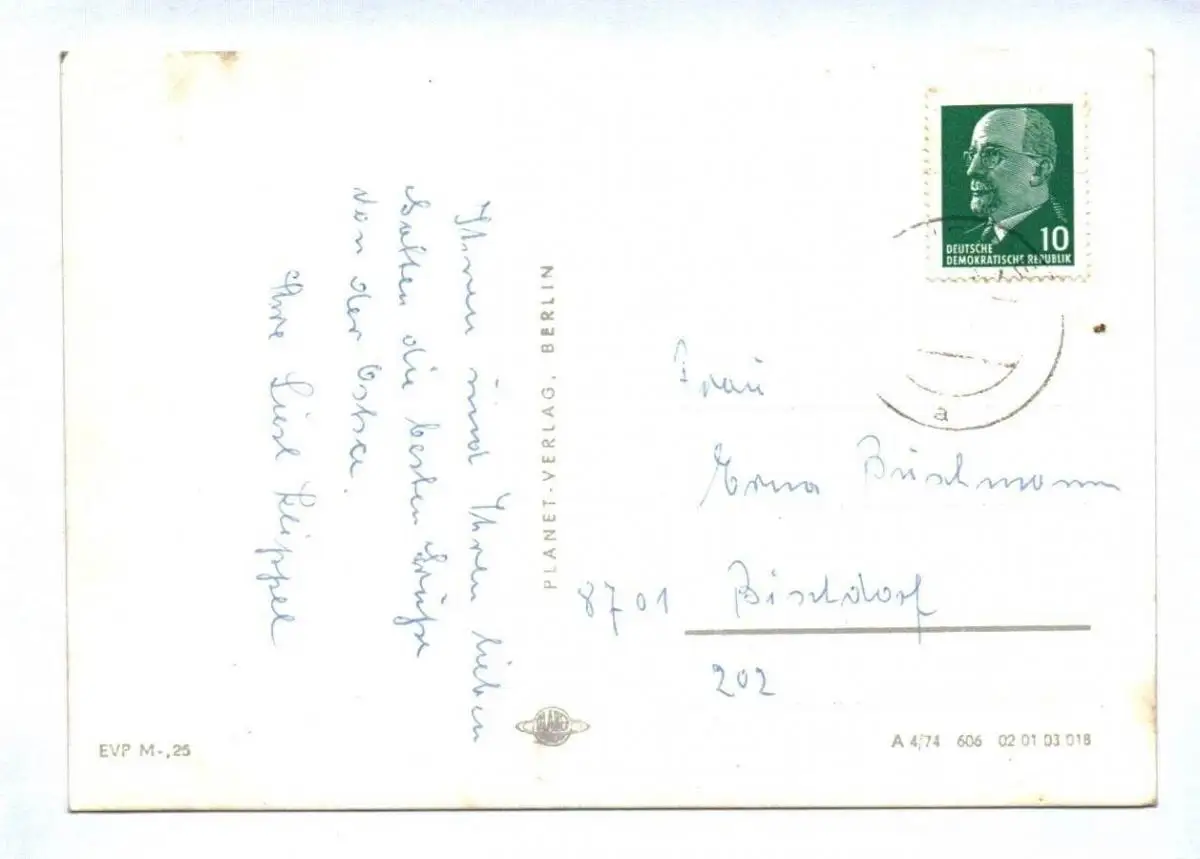 Ihnen und Ihren lieben
die besten Grüße
von der Ostsee.
Ihre Liesl Klippel
PLANET-VERLAG, BERLIN
PLANET
EVP M-,25
10
DEUTSCHE
DEMOKRATISCHE REPUBLIK
a
Frau
Erna Buschmann
8701 Bischdorf
202
A 4/74 606 02 01 03 018